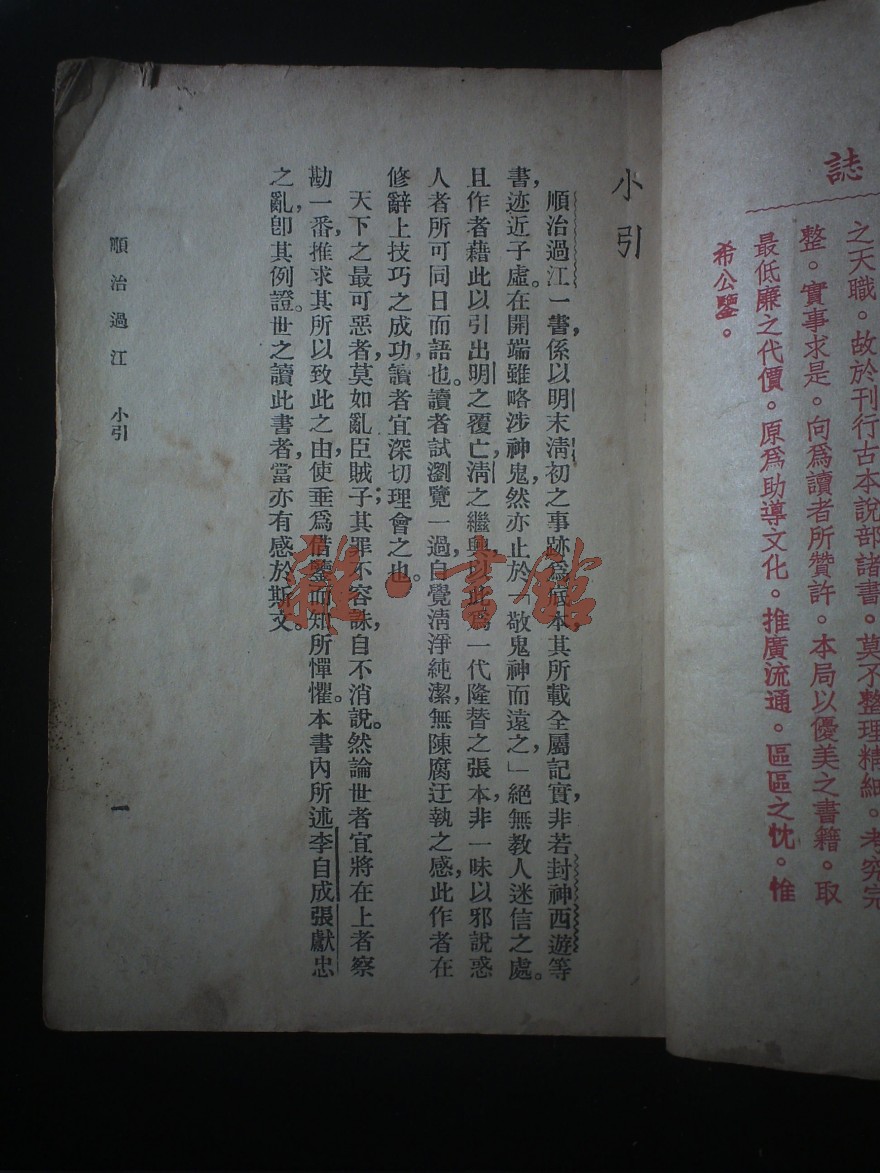 誌
之天職。故於刊行古本說部諸書。莫不整理精細。考究完
整。實事求是。向爲讀者所贊許。本局以優美之書籍。取
最低廉之代價。原爲助導文化。推廣流通。區區之忱。惟
希公鑒。
小引
順治過江一書，係以明末淸初之事跡爲底本，其所載全屬記實，非若封神西遊等
書，迹近子虛。在開端雖略涉神鬼，然亦止於「敬鬼神而遠之，」絕無教人迷信之處。
且作者藉此以引出明之覆亡，淸之繼興，以此爲一代隆替之張本，非一味以邪說惑
人者所可同日而語也。讀者試瀏覽一過，自覺淸淨純潔，無陳腐迂執之感，此作者在
修辭上技巧之成功，讀者宜深切理會之也。
天下之最可惡者，莫如亂臣賊子；其罪不容誅，自不消說。然論世者宜將在上者察
勘一番，推求其所以致此之由，使垂爲借鑒而知所憚懼。本書內所述李自成張獻忠
之亂，卽其例證。世之讀此書者，當亦有感於斯文。
順治過江 小引
一
雜·書館